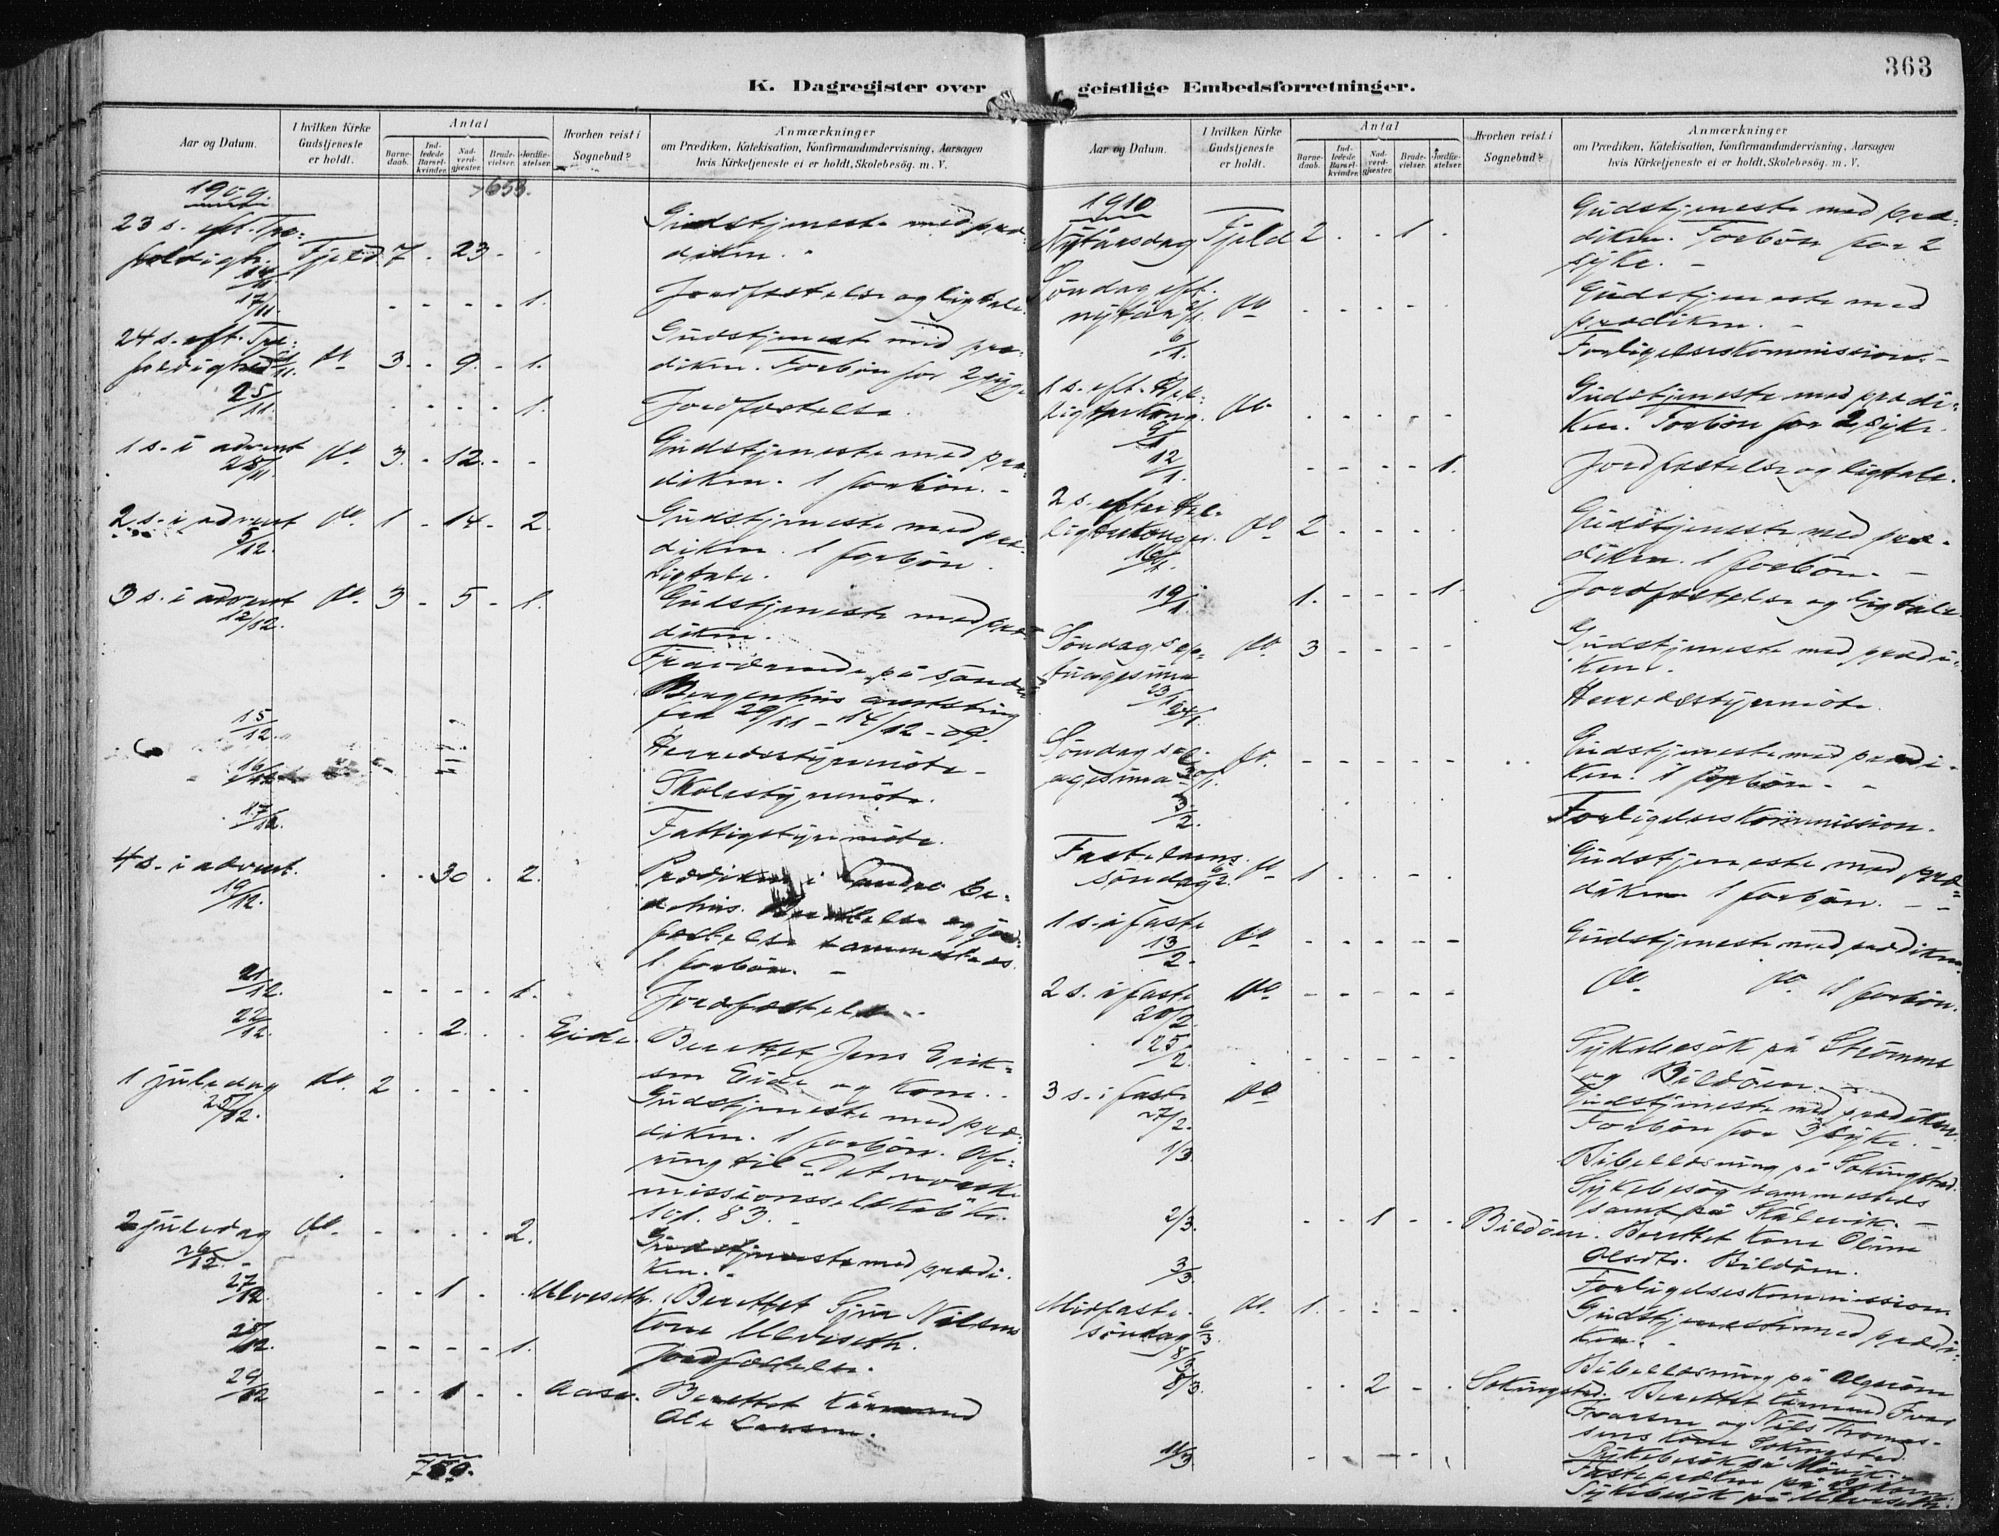 363
K. Dagregister over geistlige Embedsforretninger.
Aar og Datum.
I hvilken Kirke Gudstjeneste er holdt.
Antal
Barnedaab.
Indledede Barselkvinder.
Nadverdgjæster.
Brudevielser.
Jordfæstelser.
Hvorhen reist i Sognebud?
Anmærkninger
om Prædiken, Katekisation, Konfirmandundervisning, Aarsagen
hvis Kirketjeneste ei er holdt, Skolebesøg. m. V.
1909 653.
23 s. eft. Tre- Gudstjeneste med præ-
foldigh. 14/11 Fjeld 7 - 23 - - diken.
17/11 - - - - 1. Jordfæstelse og ligtale.
24 s. eft. Tre- Gudstjeneste med præ-
foldighed 21/11 do 3 - 9 - 1. diken. Forbøn for 2 syge
25/11 - - - - 1. Jordfæstelse.
1 s. i advent do 3 - 12 - - Gudstjeneste med præ-
diken. 1 forbøn.
2 s. i advent do 1 - 14 - 2. Gudstjeneste med præ-
5/12. diken. 1 forbøn.
Ligtale.
3 s. i advent do 3 - 5 - 1. Gudstjeneste med præ-
12/12. diken.
Fraværende på søndre
Bergenhus amtsting
fra 29/11 - 14/12 - 09.
15/12 Herredsstyremøte
16/12 Skolestyremøte.
17/12. Fattigstyremøte.
4 s. i advent. - - 30 - 2. Prædiken i Landro be-
19/12. dehus. og jord-
fæstelse sammesteds
1 forbøn.
21/12. - - - - 1. Jordfæstelse
22/12. 2 Eide. Berettet Jens Erik-
sen Eide og kone.
1 juledag do 2 - - - - Gudstjeneste med præ-
25/12. diken. 1 forbøn. Of-
ring til "Det norske
missionsselskab" kr.
101. 83.
2 juledag do - - - - 2. Gudstjeneste med prædi-
26/12. ken.
27/12 - - 1 - - Ulveseth. Berettet Gjør Nilsens
kone Ulveseth.
28/12. - - - - 1. Jordfæstelse.
29/12 - - 1 - - Aase. Berettet Kårmand
Ole Larsen.
759.
Aar og Datum.
I hvilken Kirke Gudstjeneste er holdt.
Antal
Barnedaab.
Indledede Barselkvinder.
Nadverdgjæster.
Brudevielser.
Jordfæstelser.
Hvorhen reist i Sognebud?
Anmærkninger
om Prædiken, Katekisation, Konfirmandundervisning, Aarsagen
hvis Kirketjeneste ei er holdt, Skolebesøg. m. V.
1910 Gudstjeneste med præ-
Nytårsdag Fjeld 2 - - 1 - diken. Forbøn for 2
syke.
Søndag eft. Gudstjeneste med
nytår 2/1. do - - - - - prædiken.
6/1. Forligelseskommission.
1 s. eft. Hel- Gudstjeneste med prædi-
ligtrekong. do - - - - - ken. Forbøn for 2 syke.
9/1
12/1. - - - - 1. Jordfæstelse og ligtale.
2 s. efter Hel- Gudstjeneste med præ-
ligtrekonger. do 2 - - - - diken. 1 forbøn.
16/1.
19/1. 1. - - - 1. Jordfæstelse og ligtale.
Søndag sep- do 3 - - - - Gudstjeneste med prædi-
tuagesima ken.
23/1
24/1. Herredsstyremøte.
Søndag sek- do - - - - - Gudstjeneste med prædi-
sagesima 30/1. ken. 1 forbøn.
3/2. Forligelseskommission.
Fastelavns- Gudstjeneste med præ-
søndag 6/2. do 1 - - - - diken 1 forbøn.
1 s. i faste do - - - - - Gudstjeneste med prædiken
13/2.
2 s. i faste do - - - - - do do 1 forbøn.
20/2.
25/2. - - - - - Sykebesøk på Strømme
og Bildøen.
3 s. i faste do Gudstjeneste med prædiken
27/2. Forbøn for 3 syke.
1/3. Bibellæsning på Sekingstad.
Sykebesøg sammesteds
samt på Skålevik.
2/3. - - 1 - - Bildøen. Berettet kone Oline
Olsdtr. Bildøen.
3/3. Forligelseskommission
Midfaste- do 1. - - - - Gudstjeneste med prædi-
søndag 6/3 ken.
8/3 Bibellæsning på Algrøen
8/3. - - 2 - - Sekingstad. Berettet Kårmand Ivar
Ivarsen og Nils Thomas-
sens kone Sekingstad.
11/3 Sykebesøk på Møvik.
Fastepræken på
Sykebesøk på Ulveseth.